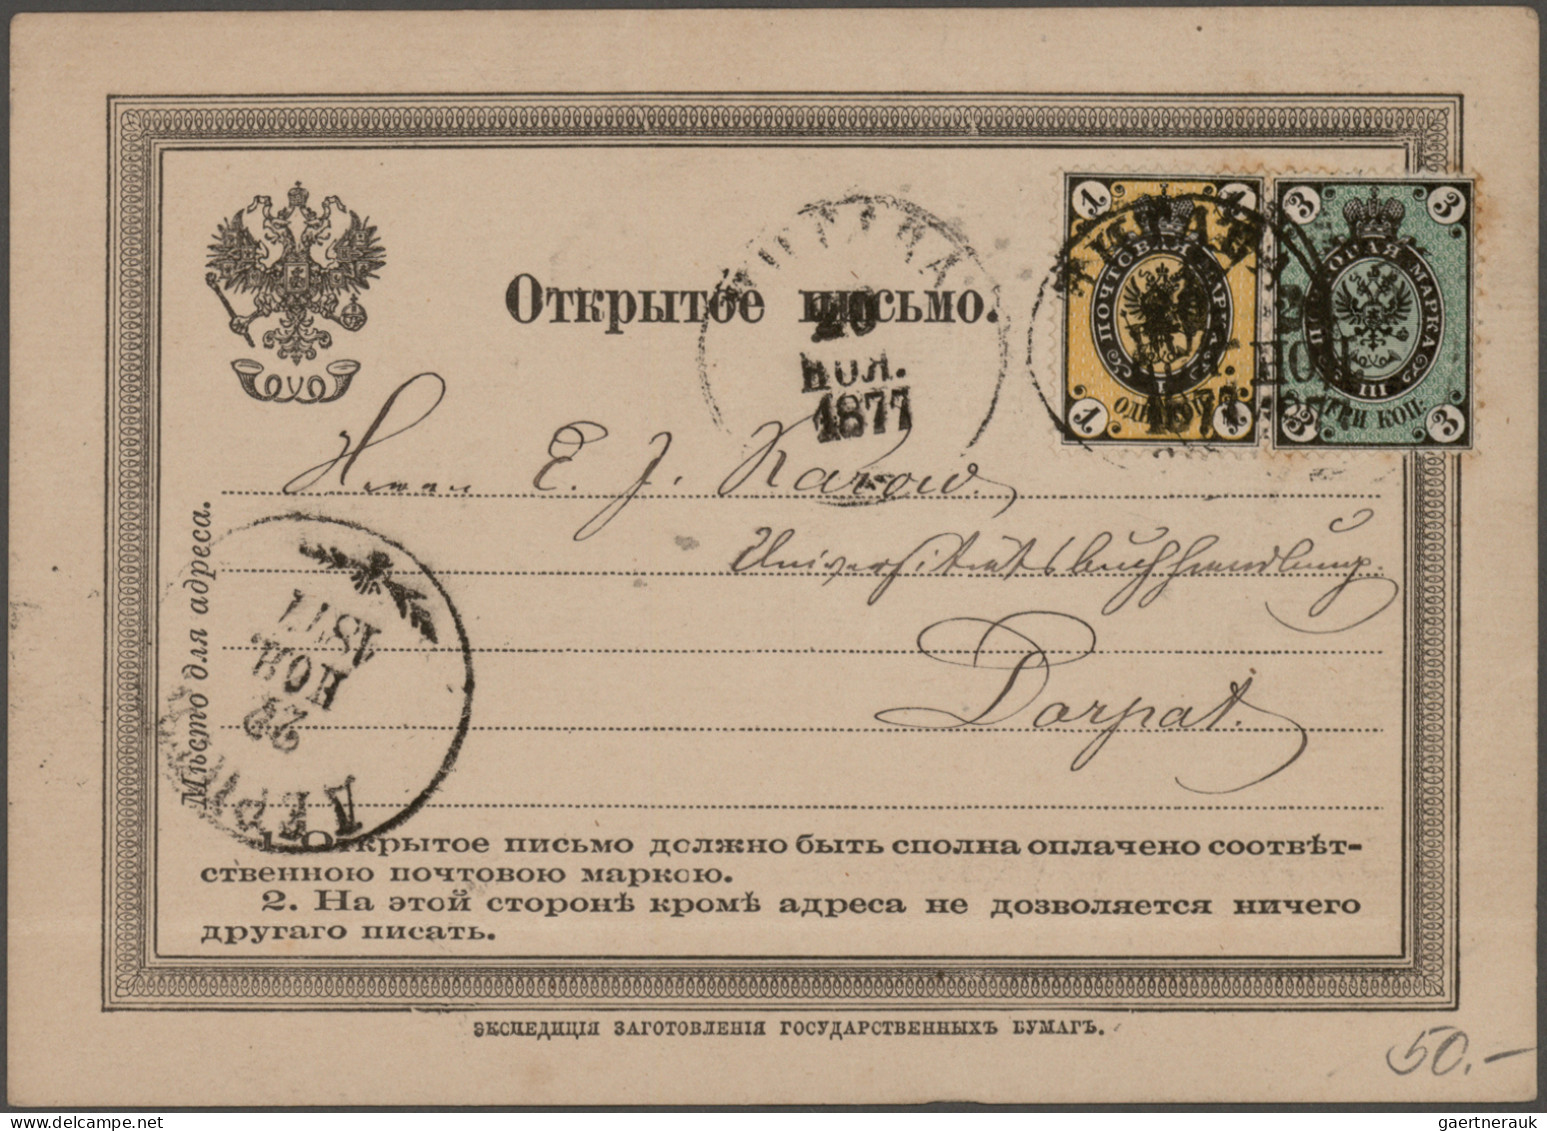 Открытое письмо.
20
НОЯ.
1877
1 1
ПОЧТОВАЯ МАРКА
I
1 1
3 3
МАРКА
III
3 ТРИ КОП. 3
НОЯ.
1877
Herrn E. J. Karow.
Universitätsbuchhandlung.
Dorpat.
Мѣсто для адреса.
1877
НОЯ
22
ДЕРПТ
1. Открытое письмо должно быть сполна оплачено соотвѣт-
ственною почтовою маркою.
2. На этой сторонѣ кромѣ адреса не дозволяется ничего
другаго писать.
ЭКСПЕДИЦІЯ ЗАГОТОВЛЕНІЯ ГОСУДАРСТВЕННЫХЪ БУМАГЪ.
50.-
gaertnerauk